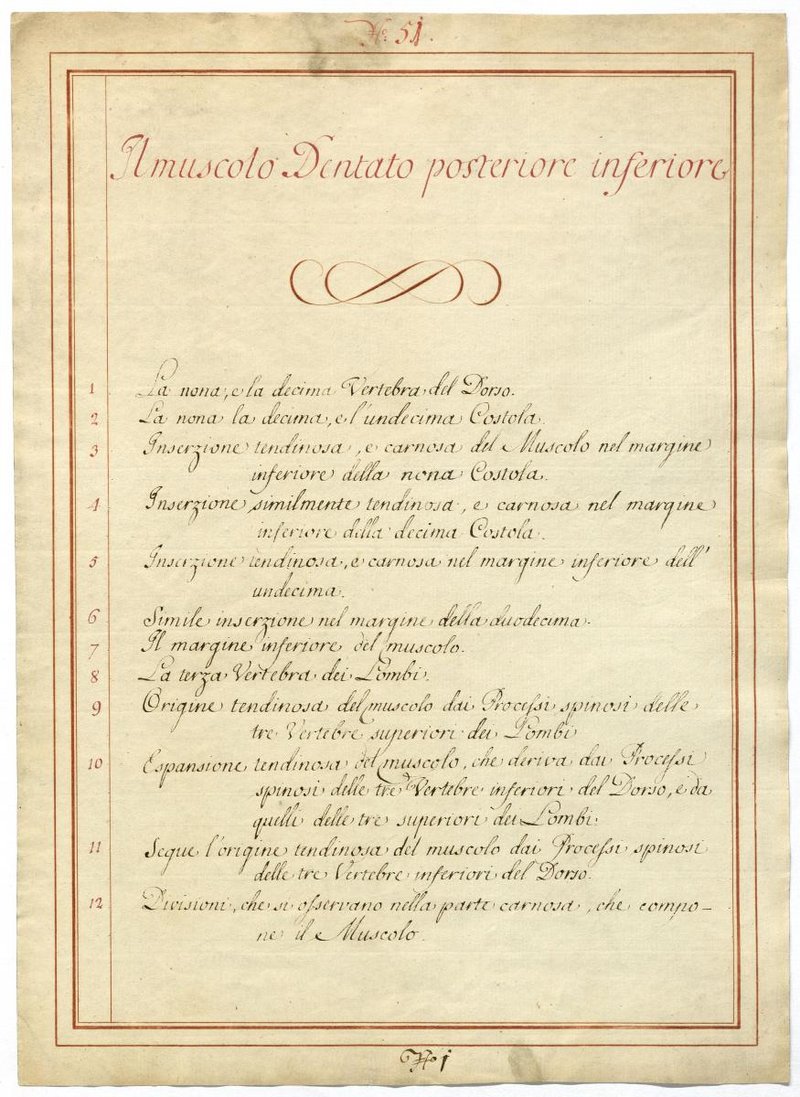 No. 51.
Il muscolo Dentato posteriore inferiore
1 La nona, e la decima Vertebra del Dorso.
2 La nona la decima, e l'undecima Costola.
3 Inserzione tendinosa, e carnosa del Muscolo nel margine
inferiore della nona Costola.
4 Inserzione similmente tendinosa, e carnosa nel margine
inferiore della decima Costola.
5 Inserzione tendinosa, e carnosa nel margine inferiore dell'
undecima.
6 Simile inserzione nel margine della duodecima.
7 Il margine inferiore del muscolo.
8 La terza Vertebra dei Lombi.
9 Origine tendinosa del muscolo dai Processi spinosi delle
tre Vertebre superiori dei Lombi
10 Espansione tendinosa del muscolo, che deriva dai Processi
spinosi delle tre Vertebre inferiori del Dorso, e da
quelli delle tre superiori dei Lombi.
11 Segue l'origine tendinosa del muscolo dai Processi spinosi
delle tre Vertebre inferiori del Dorso.
12 Divisioni, che si osservano nella parte carnosa, che compo-
ne il Muscolo.